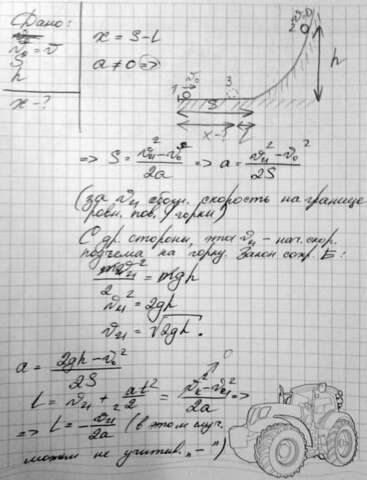 Дано:
v₀ = v
S
h
x - ?
x = S - L
a ≠ 0 =>
1 v₀
S
x - ?
L
3
2
v = 0
h
=> S = (vᵤ² - v₀²)/2a => a = (vᵤ² - v₀²)/2S
(за vᵤ обозн. скорость на границе
ровн. пов. / горки)
С др. стороны, эта vᵤ - нач. скор.
подъёма на горку. Закон сохр. E:
mvᵤ²/2 = mgh
vᵤ² = 2gh
vᵤ = √2gh.
a = (2gh - v₀²)/2S
0
L = vᵤ + at²/2 = (vₖ² - vᵤ²)/2a =>
=> L = - vᵤ/2a (в этом случ.
можем не учитыв. „-")